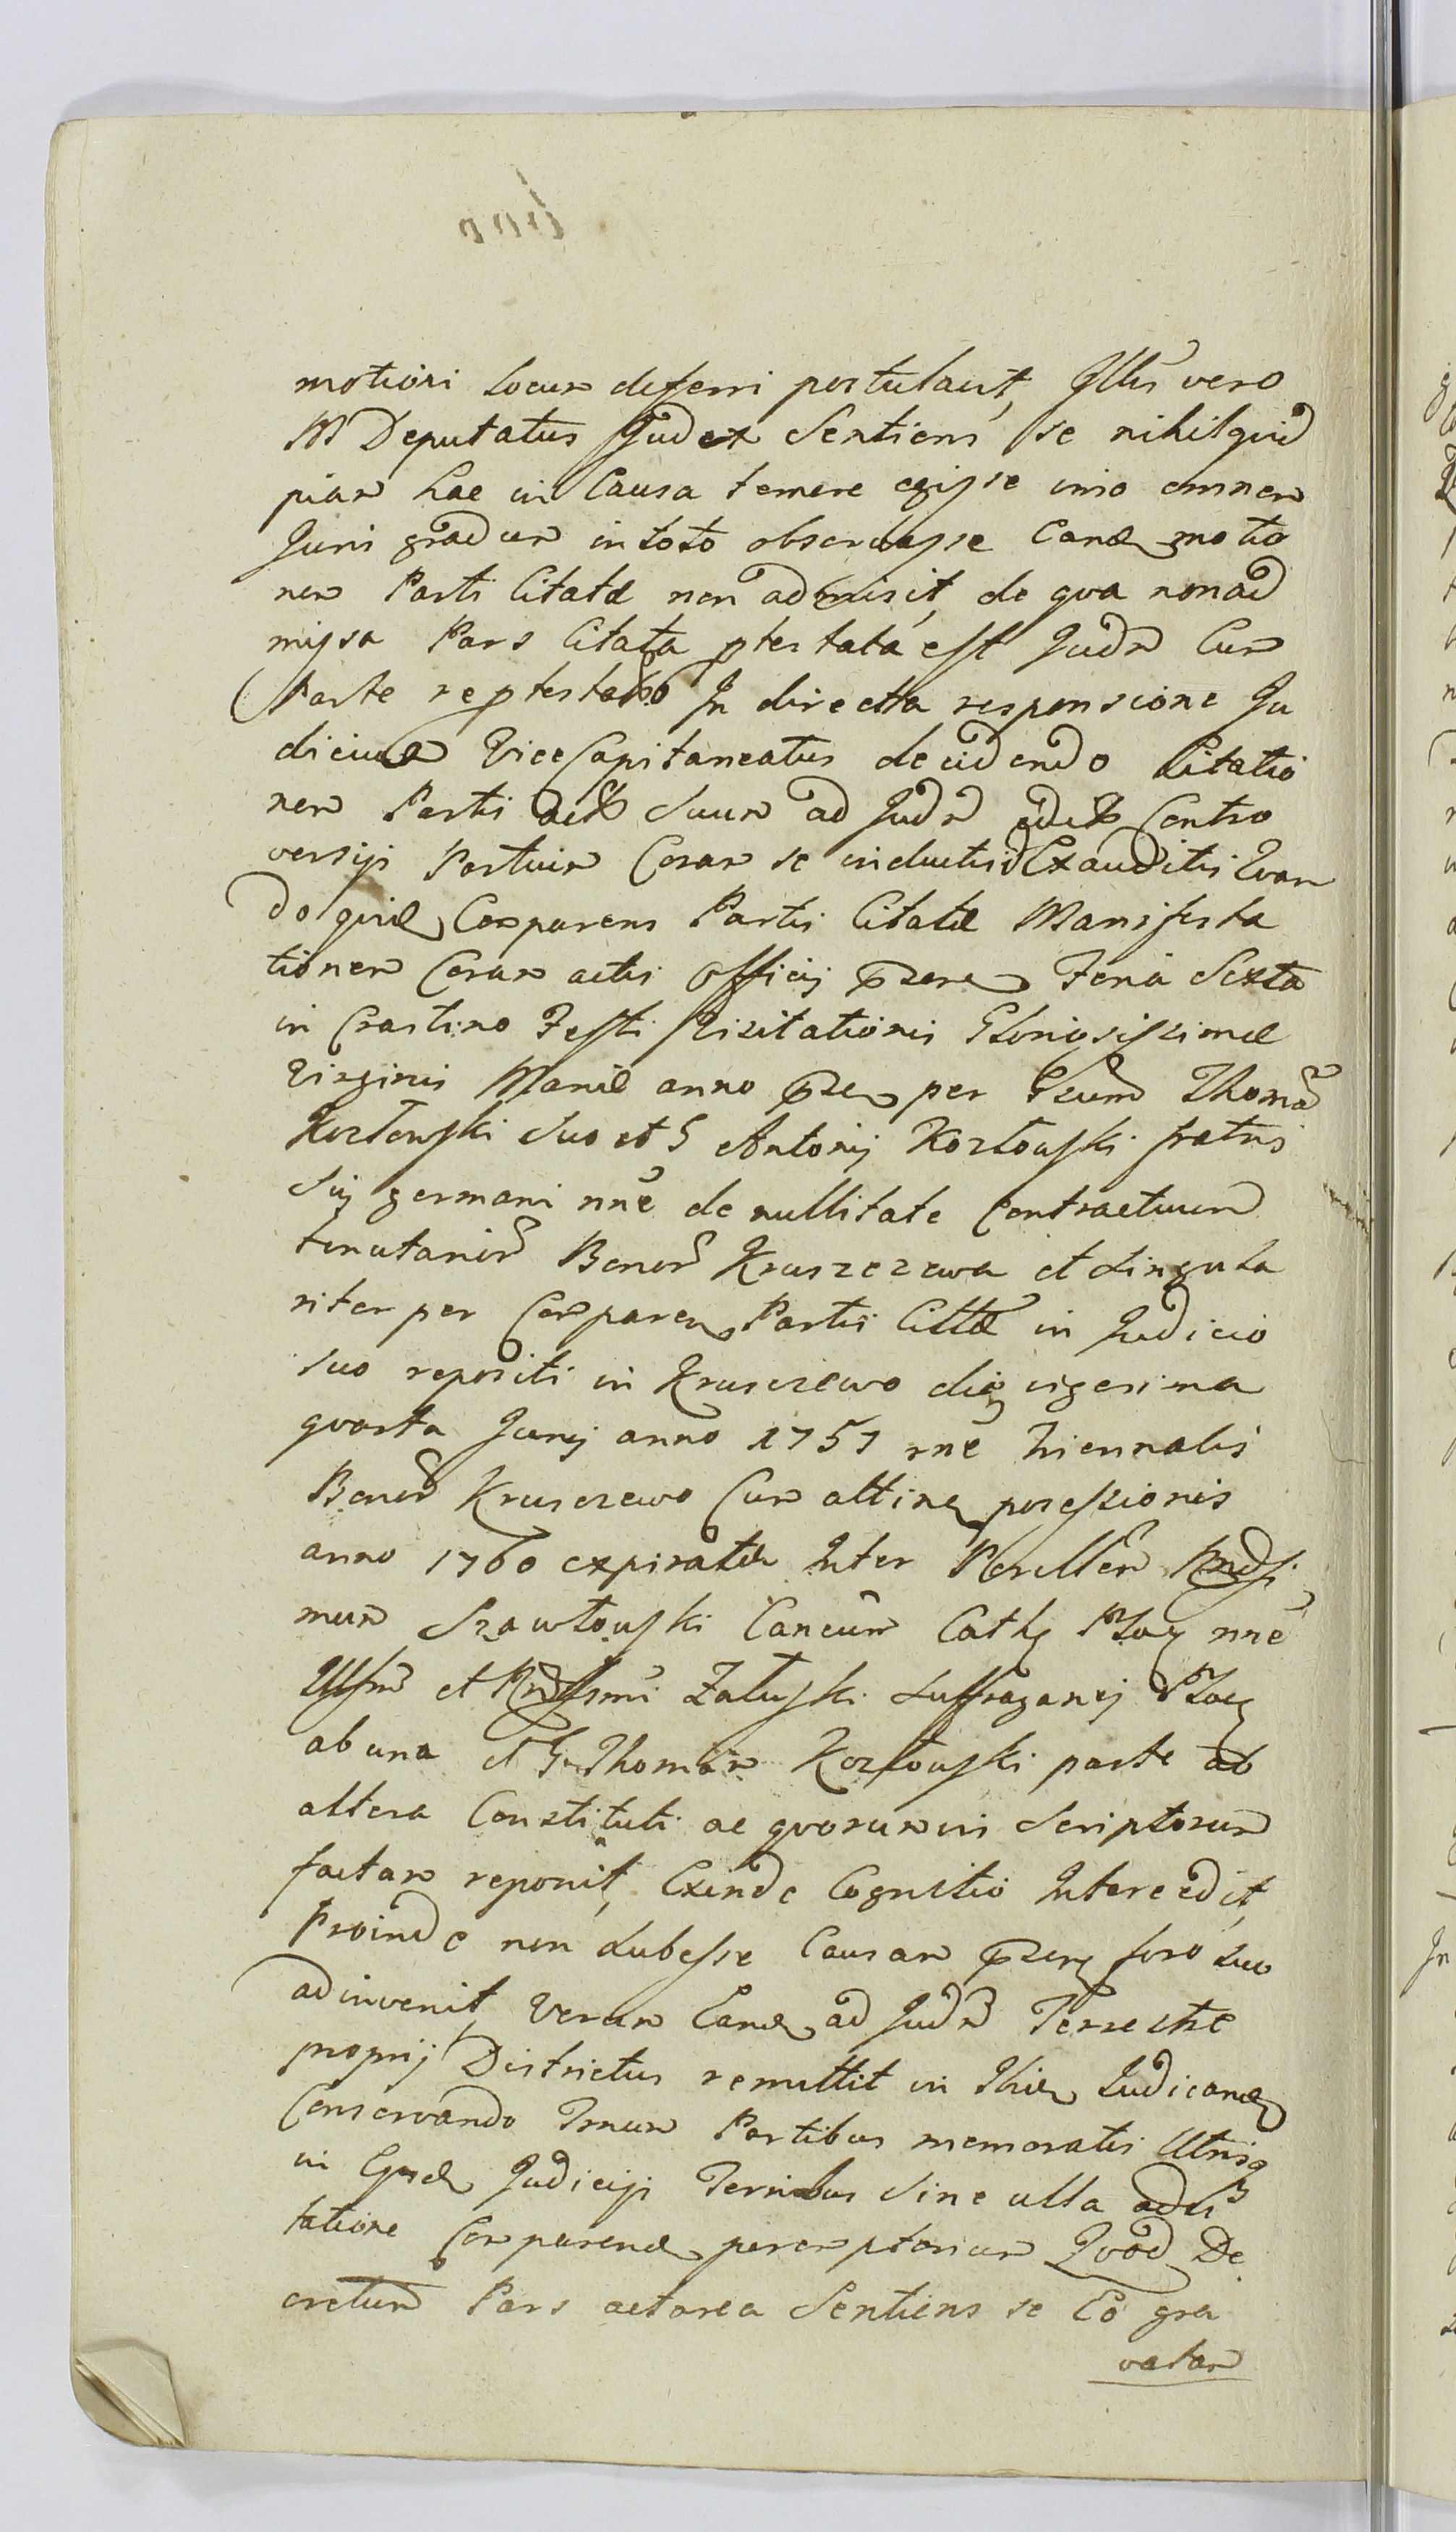 motiori locum deferri postulavit, Illūs vero
M Deputatus Judex Sentiens se nihil quid
piam hac in Causa temere egisse imo omnem
Juris gradum in toto observasse Eand motio
nem Parti Citatæ non admisit, de qva non ad
missa Pars Citata ptestata est Judm Cum
Parte reptestando In directa responsione Ju
dicium Vice Capitaneatus decidendo Citatio
nem Partis Suum ad Judm Contro
versijs Partium Coram se inductis Exauditis Qvan
do qvid Comparens Partis Citatæ Manifesta
tionem Coram actis Officij Feria Sexta
in Crastino Festi Visitationis Gloriosissimæ
Virginis Mariæ anno per Thomā
Kozłowski suo et G Antonij Kozłowski fratris
Sui germani nnē de nullitate Contractuum
tenutarior Bonor Kruszczewa et Singula
riter per Comparen Partis Cittæ in Judicio
suo repositi in Kruszczewo die vigesima
qvarta Junij anno 1757 nnē triennalis
Bonor Kruszczewo Cum attinen possessionis
anno 1760 expiratæ Inter Perillēm Rndssi
mum Szawłowski Cancūm Cathj Płocj nnē
Illsmi et Rndssmi Załuski Suffraganej Płocj
ab una et G Thomam Kozłowski parte ab
altera Constituti ac qvorumvis Scriptorum
factam reponit, Exinde Cognitio Intercedit,
Proinde non Subesse Causam foro suo
adinvenit, Verum Eand ad Judm Terrestre
proprij Districtus remittit in Judicand
Conservando Tmum Partibus memoratis Utrisq
in Judicijs Terribus Sine ulla adci
tatione Comparend peremptorium Qvod De
cretum Pars actorea Sentiens se Eo gra
vatam